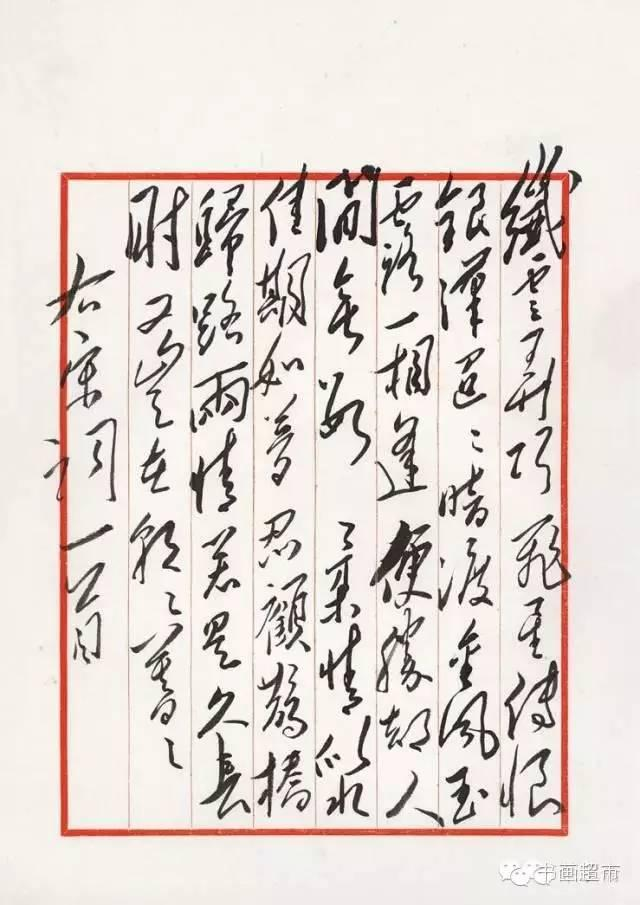 纖雲弄巧飛星傳恨
銀漢迢〻暗渡金風玉
露一相逢便勝却人
間無數柔情似水
佳期如夢忍顧鵲橋
歸路兩情若是久長
時又豈在朝〻暮〻
右宋詞一首
书画超市